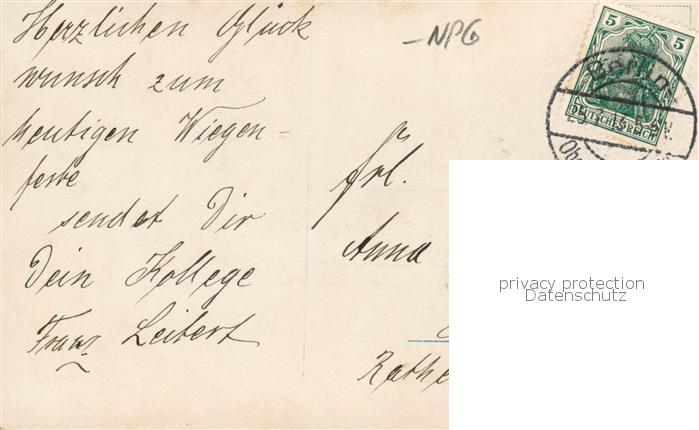 Herzlichen Glück
wunsch zum
heutigen Wiegen-
feste
sendet Dir
Dein Kollege
Franz Leibert
-NPG
5 5
DEUTSCHES REICH
Berlin
Frl.
Anna
Rathe
privacy protection
Datenschutz